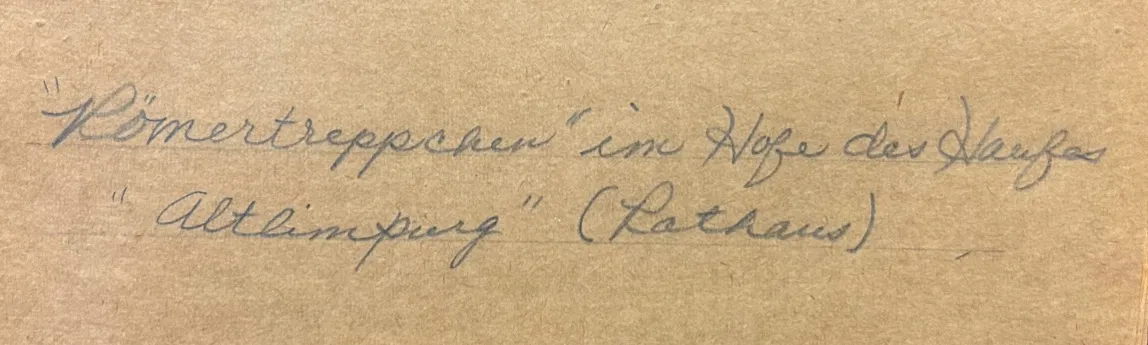 "Römertreppchen" im Hofe des Haufes
"Altlimpurg" (Rathaus)